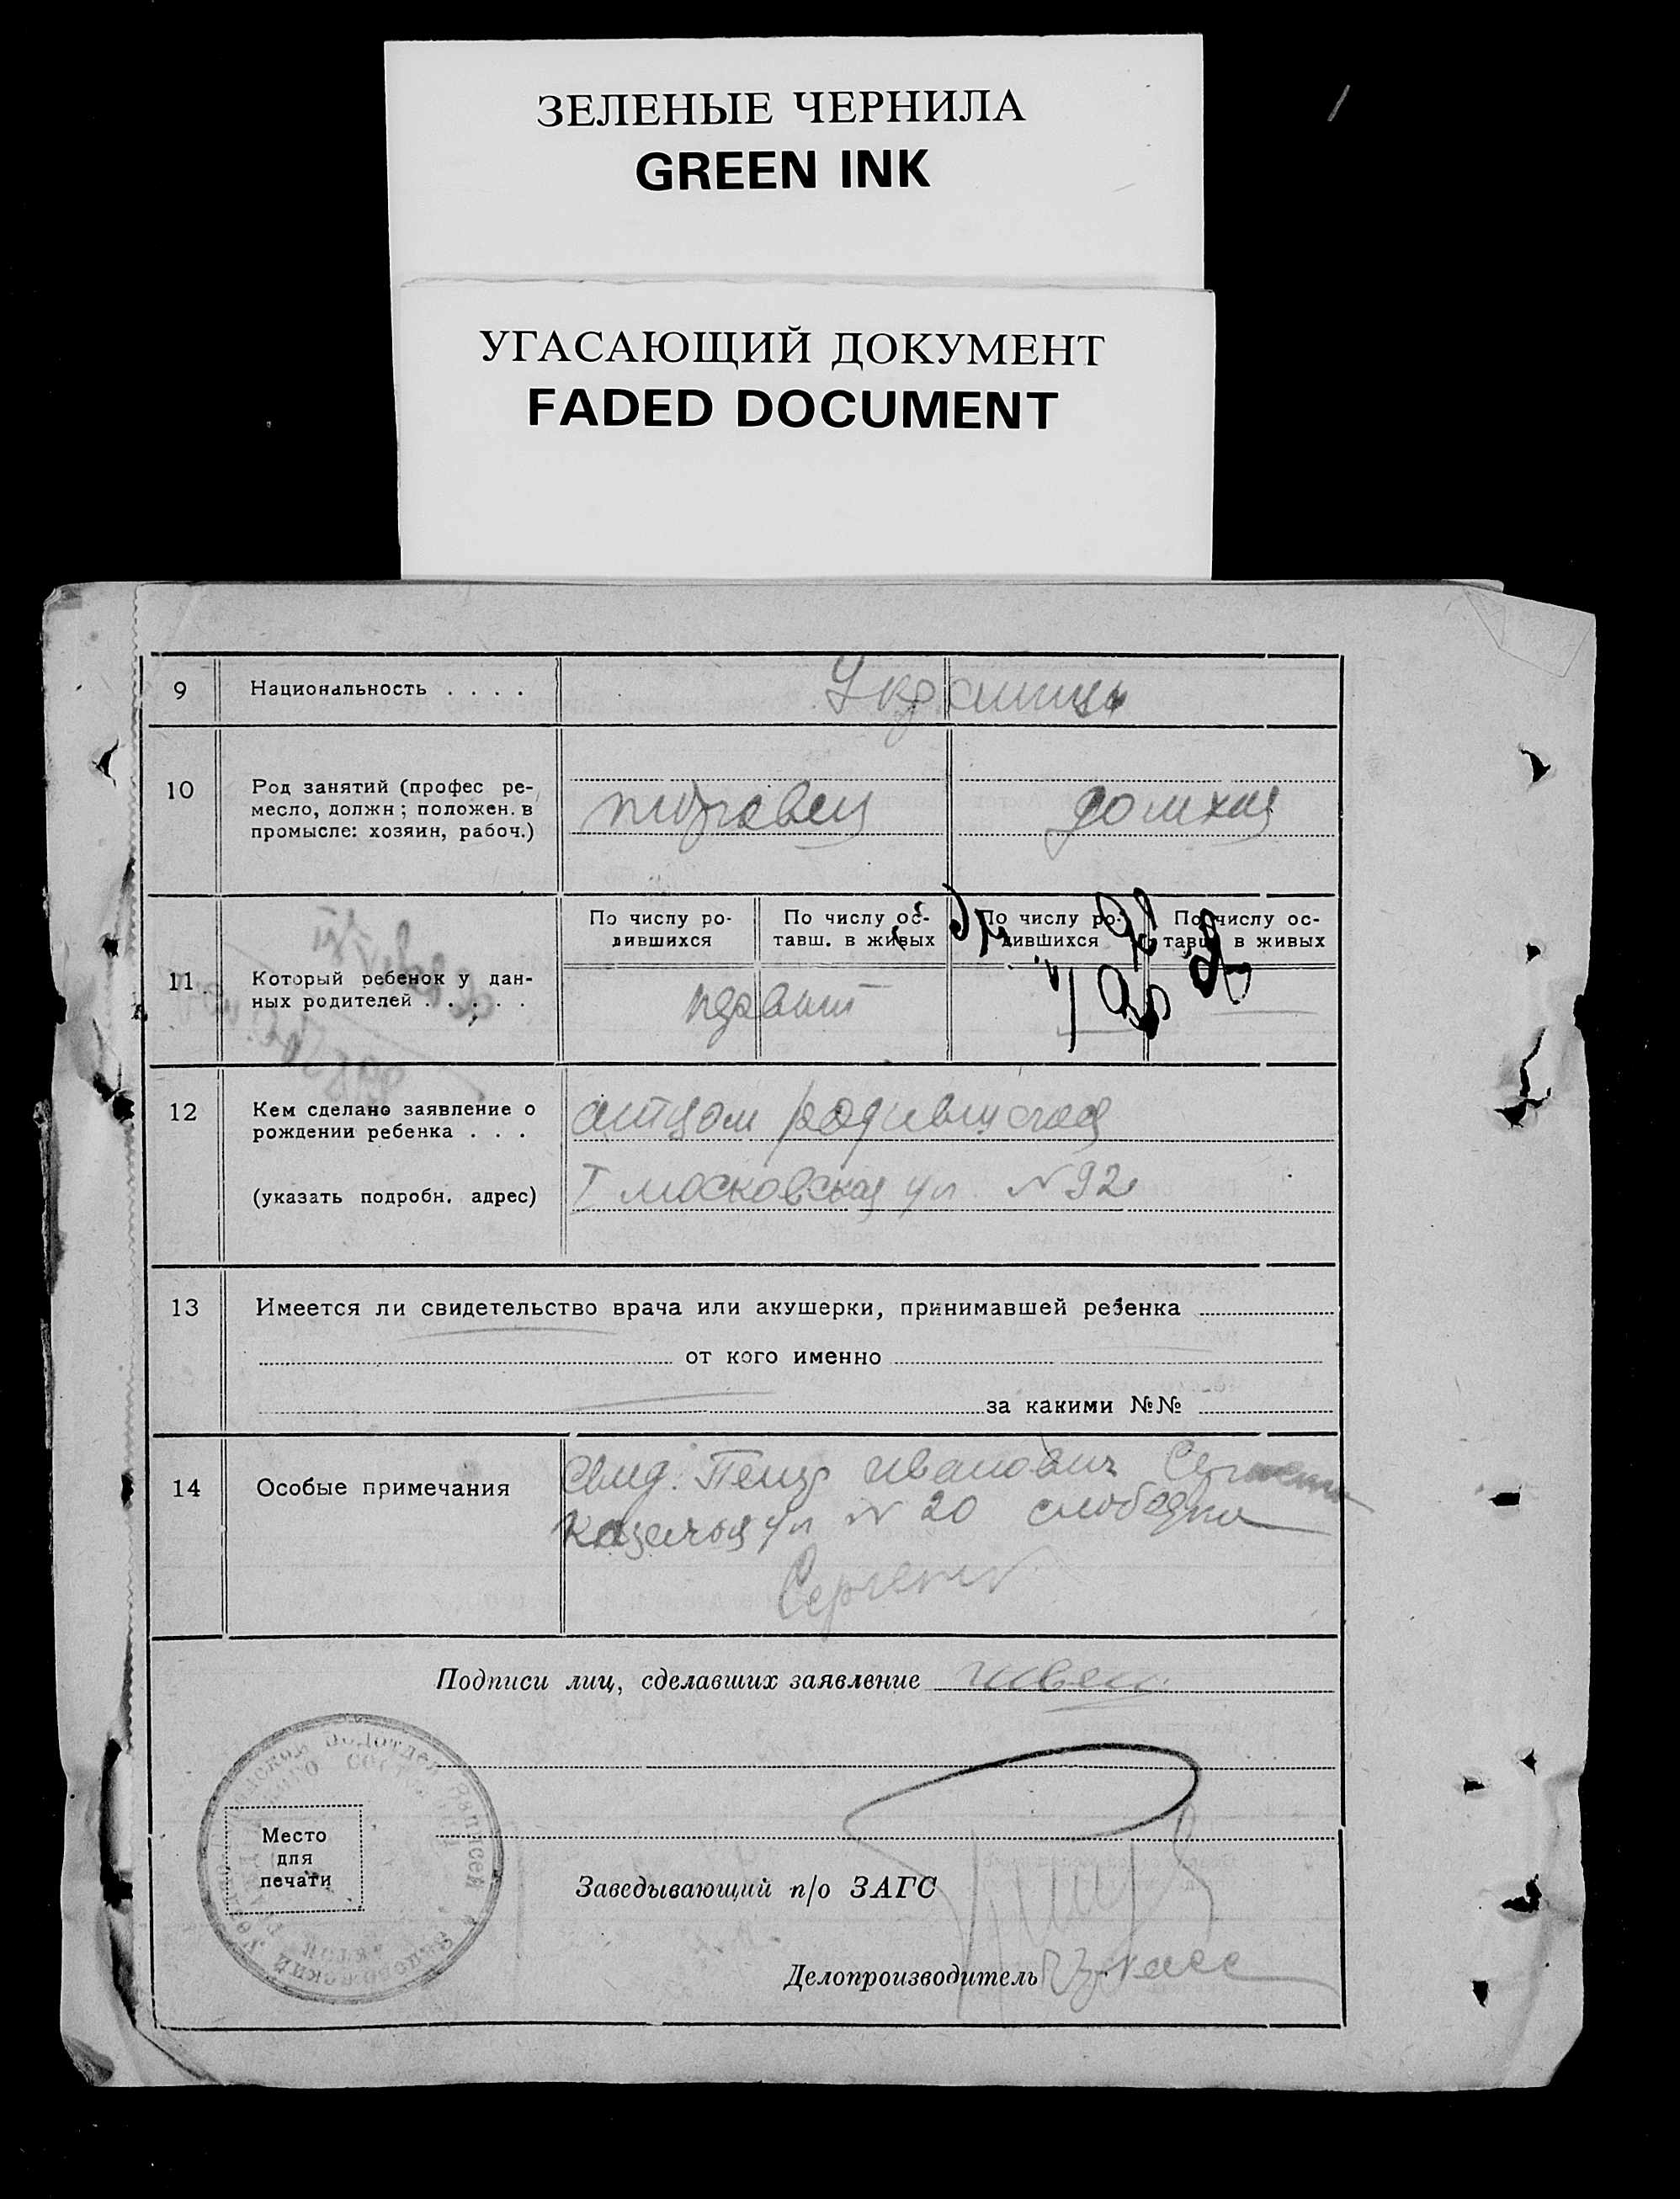 ЗЕЛЕНЫЕ ЧЕРНИЛА
GREEN INK
УГАСАЮЩИЙ ДОКУМЕНТ
FADED DOCUMENT
9 Национальность . . . . Украинцы
10 Род занятий (профес ре-
месло, должн; положен. в
промысле: хозяин, рабоч.)
торговец домхоз
11 Который ребенок у дан-
ных родителей . . . . .
По числу ро-
дившихся
По числу ос-
тавш. в живых
По числу ро-
дившихся
По числу ос-
тавш. в живых
12 Кем сделано заявление о
рождении ребенка . . .
отцом родившегося
(указать подробн. адрес) I московская ул №92
13 Имеется ли свидетельство врача или акушерки, принимавшей ребенка
от кого именно
за какими №№
14 Особые примечания
Свид. Петр Иванович
Казачья ул № 20 слободка
Подписи лиц, сделавших заявление Швец
Место
для
печати
Заведывающий п/о ЗАГС
Делопроизводитель